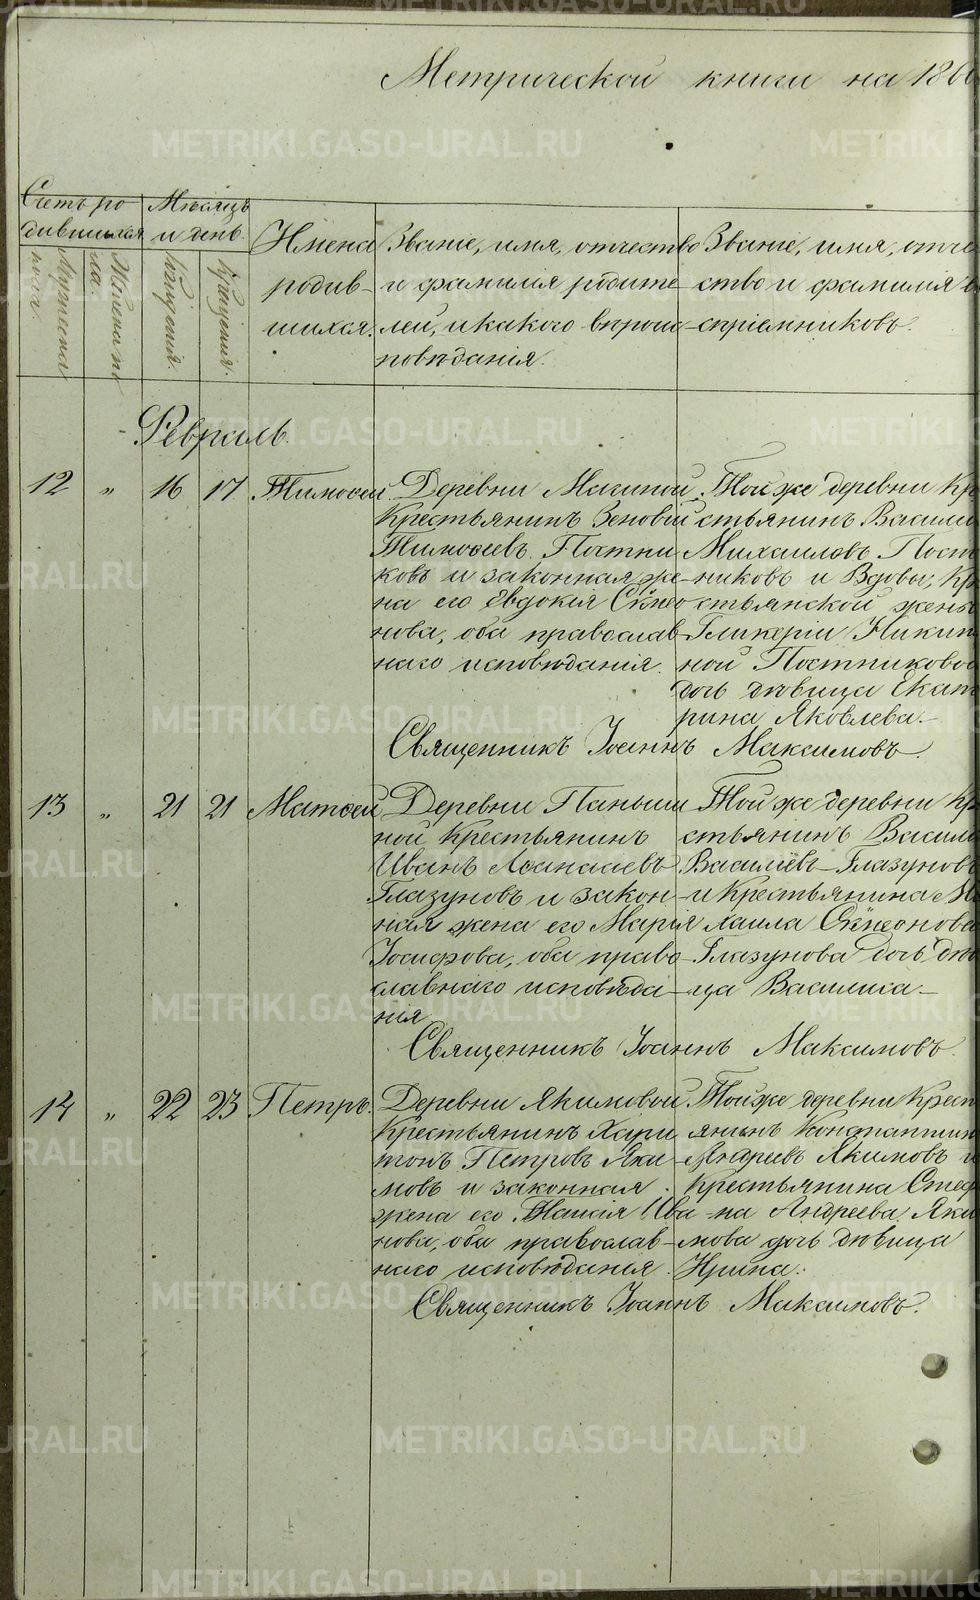 Метрической книги на 186
Счетъ родившихся
Мѣсяцъ и день
Мужеска пола.
Женска пола.
Рожденія.
Крещенія.
Имена родившихся.
Званіе, имя, отчество
и фамилія родите
лей, и какого вѣроис
повѣданія.
Званіе, имя, отче
ство и фамилія во
спріемниковъ.
Февраль.
12 " 16 17 Тимоѳей
Деревни Магиной
Крестьянинъ Зеновій
Тимоѳеевъ Постни
ковъ и законная же
на его Евдокія Сѵмео
нова, оба православ
наго исповѣданія.
Той же деревни Кре
стьянинъ Василій
Михаиловъ Пост
никовъ и Вдовы, Кре
стьянской жены
Гликеріи Никит
ной Постниковой
дочь дѣвица Екате
рина Яковлева.
Священникъ Іоаннъ Максимовъ.
13 " 21 21 Матѳей
Деревни Паньши
ной Крестьянинъ
Иванъ Аѳанасьевъ
Глазуновъ и закон
ная жена его Марія
Іосифова, оба право
славнаго исповѣда
нія
Той же деревни Кре
стьянинъ Василій
Василіевъ Глазуновъ
и Крестьянина Ми
хаила Сѵмеонова
Глазунова дочь дѣви
ца Василиса
Священникъ Іоаннъ Максимовъ.
14 " 22 23 Петръ.
Деревни Якимовой
Крестьянинъ Хари
тонъ Петровъ Яки
мовъ и законная
жена его Таисія Ива
нова, оба православ
наго исповѣданія.
Той же деревни Крест
янинъ Константинъ
Андреевъ Якимовъ и
Крестьянина Стефа
на Андреева Яки
мова дочь дѣвица
Ирина.
Священникъ Іоаннъ Максимовъ.
METRIKI.GASO-URAL.RU